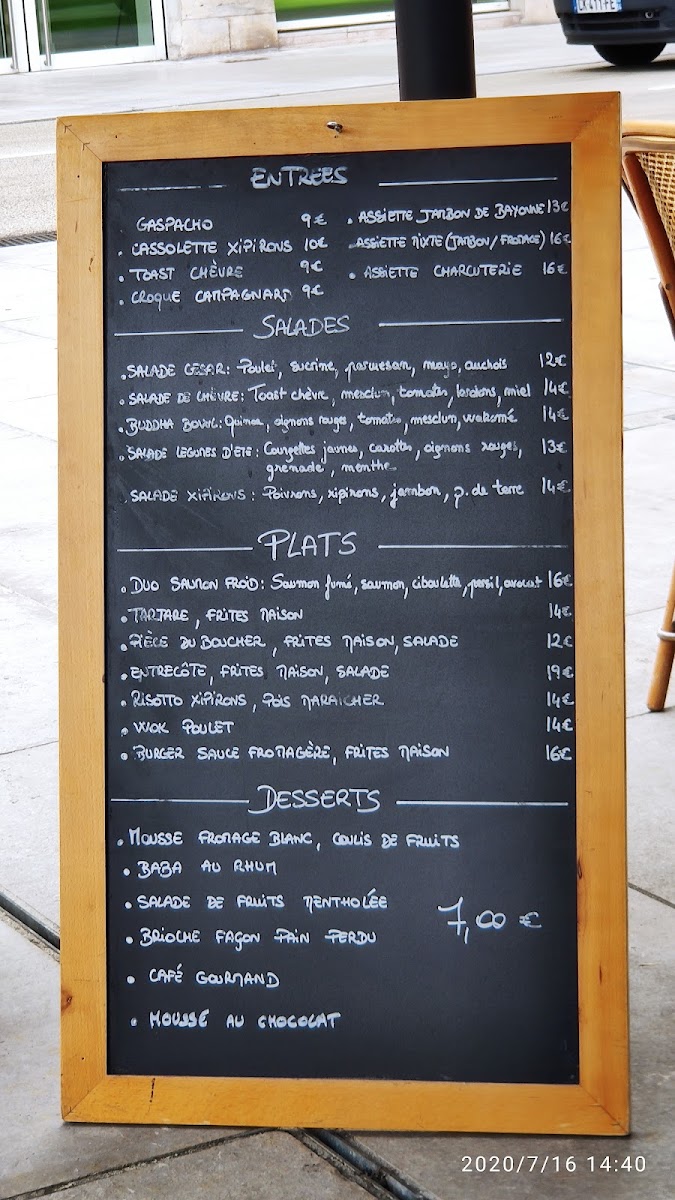 ENTREES
GASPACHO 9€
• CASSOLETTE XIPIRONS 10€
• TOAST CHÈVRE 9€
• CROQUE CAMPAGNARD 9€
• ASSIETTE JAMBON DE BAYONNE 13€
ASSIETTE MIXTE (JAMBON/FROMAGE) 16€
• ASSIETTE CHARCUTERIE 16€
SALADES
• SALADE CESAR: Poulet, sucrine, parmesan, mayo, anchois 12€
• SALADE DE CHÈVRE: Toast chèvre, mesclun, tomates, lardons, miel 14€
• BUDDHA BOWL: Quinoa, oignons rouges, tomates, mesclun, wakamé 14€
• SALADE LEGUMES D'ETE: Courgettes jaunes, carottes, oignons rouges, 13€
grenade, menthe
• SALADE XIPIRONS: Poivrons, xipirons, jambon, p. de terre 14€
PLATS
• DUO SAUMON FROID: Saumon fumé, saumon, ciboulette, persil, avocat 16€
• TARTARE, FRITES MAISON 14€
• PIÈCE DU BOUCHER, FRITES MAISON, SALADE 12€
• ENTRECÔTE, FRITES MAISON, SALADE 19€
• RISOTTO XIPIRONS, POIS MARAICHER 14€
• WOK POULET 14€
• BURGER SAUCE FROMAGÈRE, FRITES MAISON 16€
DESSERTS
• MOUSSE FROMAGE BLANC, COULIS DE FRUITS
• BABA AU RHUM
• SALADE DE FRUITS MENTHOLÉE
• BRIOCHE FAÇON PAIN PERDU
• CAFÉ GOURMAND
• MOUSSE AU CHOCOLAT
7,00 €
2020/7/16 14:40